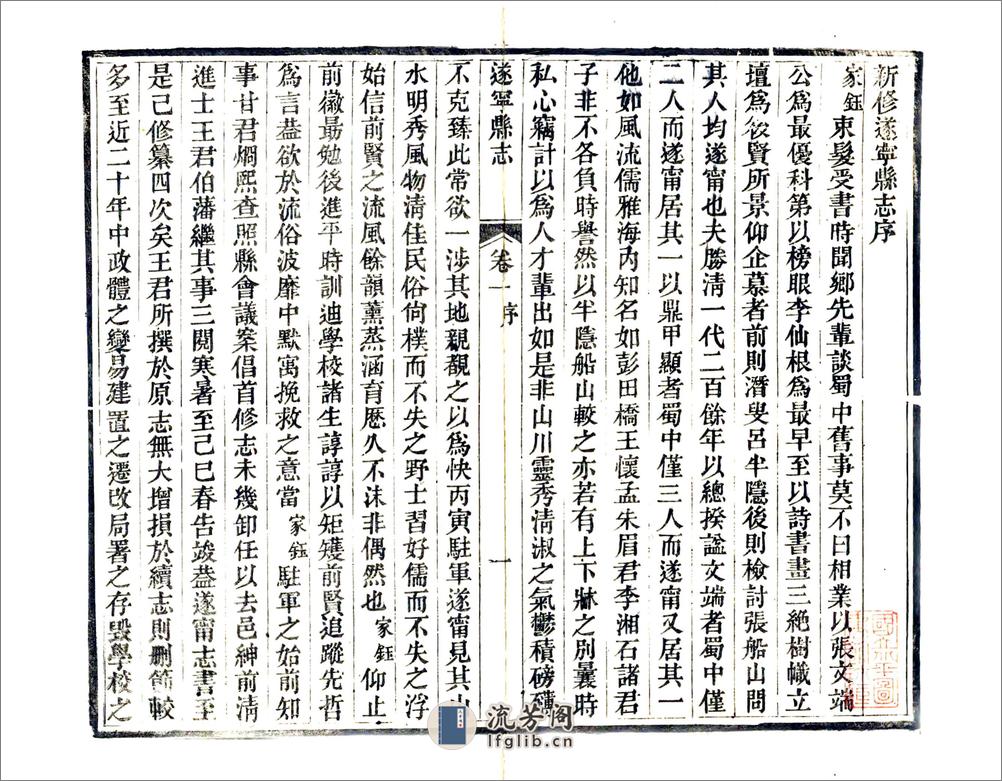 新修遂寧縣志序
家鈺束髮受書時聞鄉先輩談蜀中舊事莫不曰相業以張文端
公爲最優科第以榜眼李仙根爲最早至以詩書畫三絕樹幟立
壇爲後賢所景仰企慕者前則潛叟呂半隱後則檢討張船山問
其人均遂甯也夫勝淸一代二百餘年以總揆謚文端者蜀中僅
二人而遂甯居其一以鼎甲顯者蜀中僅三人而遂甯又居其一
他如風流儒雅海內知名如彭田橋王懷孟朱眉君李湘石諸君
子非不各負時譽然以半隱船山較之亦若有上下牀之別曩時
私心竊計以爲人才輩出如是非山川靈秀淸淑之氣鬱積磅礴
遂寧縣志
卷一
序
一
不克臻此常欲一涉其地親覩之以爲快丙寅駐軍遂甯見其山
水明秀風物淸佳民俗尙樸而不失之野士習好儒而不失之浮
始信前賢之流風餘韻薰蒸涵育歷久不沫非偶然也家鈺仰止
前徽勗勉後進平時訓迪學校諸生諄諄以矩矱前賢追蹤先哲
爲言葢欲於流俗波靡中默寓挽救之意當家鈺駐軍之始前知
事甘君燜熙查照縣會議案倡首修志未幾卸任以去邑紳前淸
進士王君伯藩繼其事三閱寒暑至己巳春告竣葢遂甯志書至
是已修纂四次矣王君所撰於原志無大增損於續志則刪節較
多至近二十年中政體之變易建置之遷改局署之存毀學校之
流芳閣
lfglib.cn